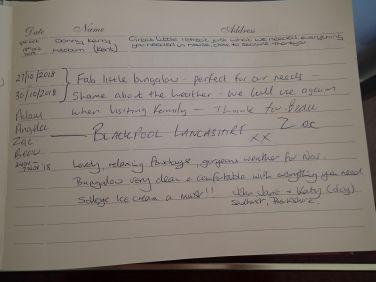 Date Name Address
Danny Kerry Great little retreat just what we needed everything
(Kent) you needed in close to
27/10/2018 Fab little bungalow - perfect for our needs -
30/10/2018 Shame about the weather - we will use again
Adam when visiting family - Thanks for
Angela BLACKPOOL LANCASHIRE xx Zac
Zac
2 Nov - 7 Nov '18 Lovely, relaxing few days, gorgeous weather for Nov.
Bungalow very clean & comfortable with everything you need
Ice cream a must!! John Jane + Katy (dog)
Berkshire